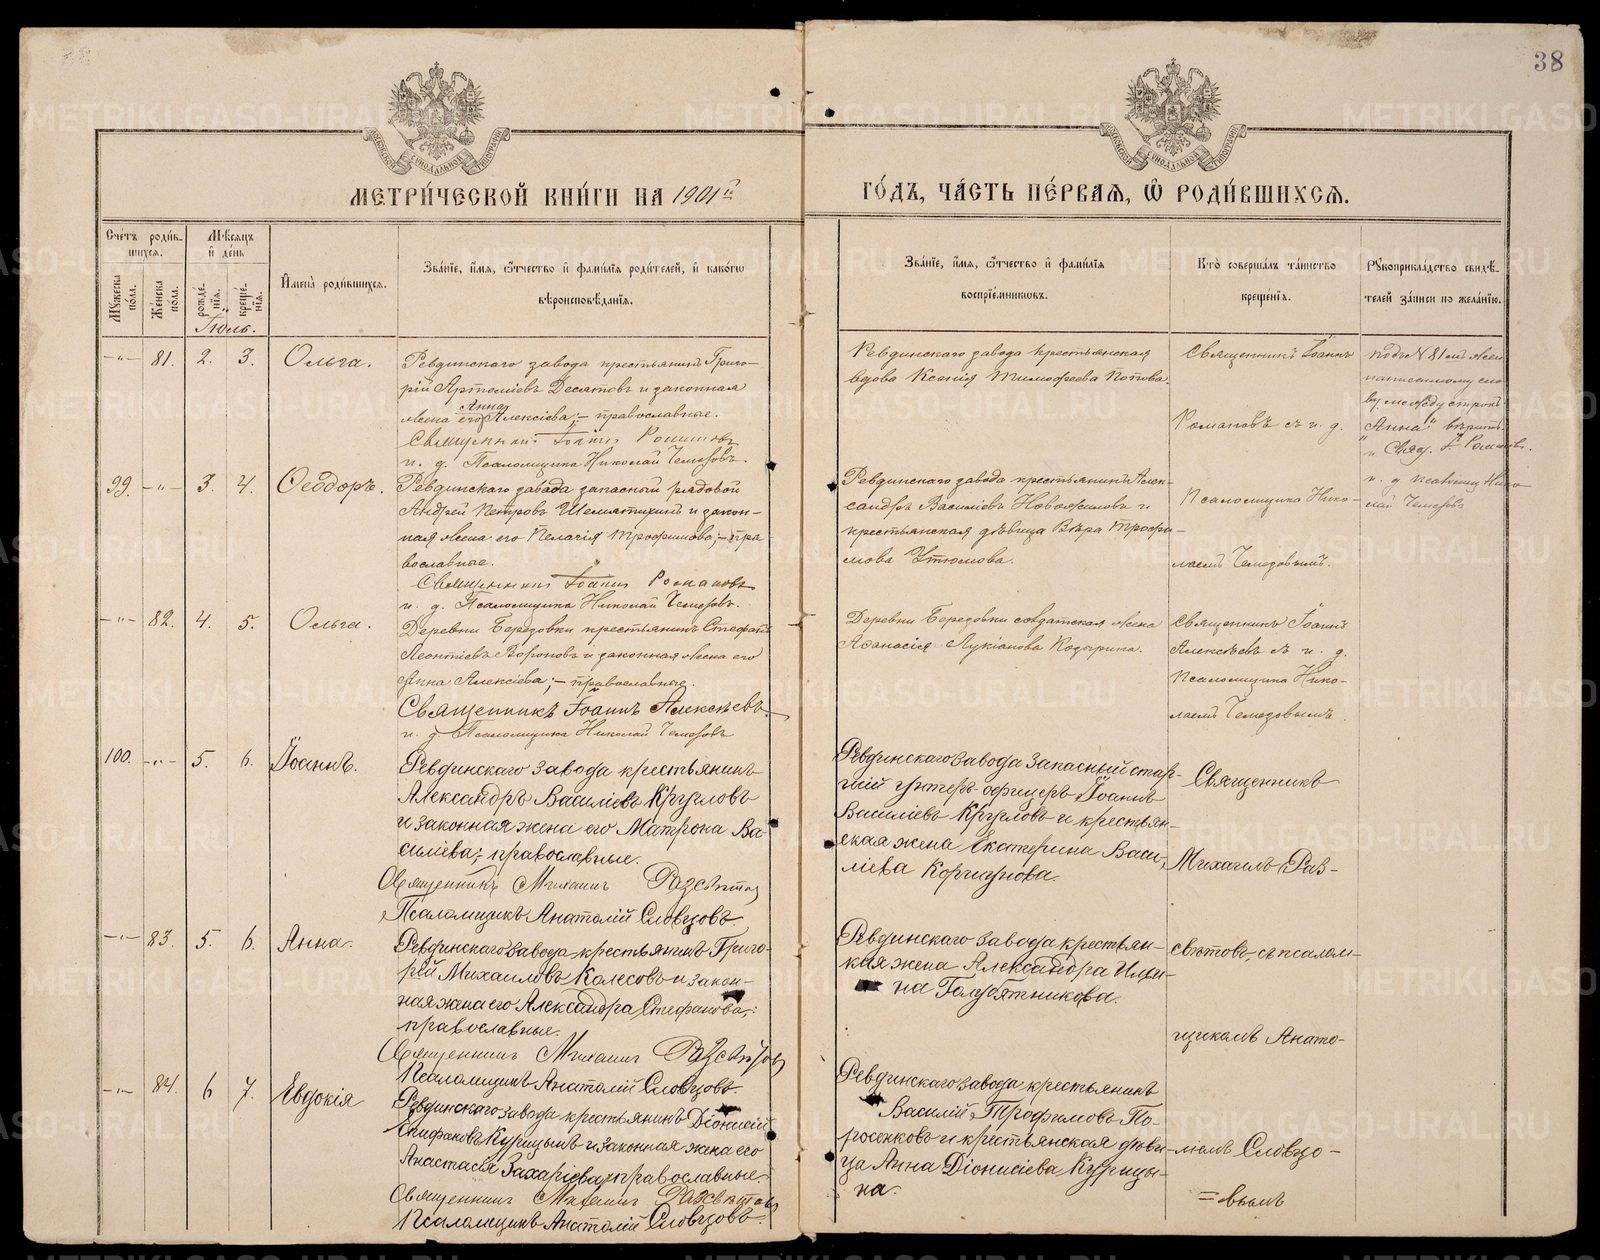 38
МЕТРИ́ЧЕСКОЙ КНИ́ГИ НА 1901й
ГО́ДЪ, ЧА́СТЬ ПЕ́РВАЯ, Ѡ РОДИ́ВШИХСЯ.
Сче́тъ роди́в-
шихся.
Мѣ́сяцъ
и де́нь
Имена̀ роди́вшихся.
Зва́нїе, и́мя, о́тчество и фами́лїя роди́телей, и како́гѡ
вѣроисповѣ́данїя.
Му́жеска по́ла.
Же́нска по́ла.
рожде́-
нїя.
креще́-
нїя.
Іюль.
Зва́нїе, и́мя, о́тчество и фами́лїя
воспрїе́мниковъ.
Кто̀ соверша́лъ та́инство
креще́нїя.
Рукоприкла́дство свидѣ́-
телей за́писи по жела́нїю.
—„— 81. 2. 3. Ольга.
Ревдинскаго завода крестьянинъ Григо-
рій Артеміевъ Десятовъ и законная
жена его Анна Алексіева; – православные.
Священникъ Іоаннъ Романовъ
и. д. Псаломщика Николай
Ревдинскаго завода крестьянская
вдова Ксенія Тимофеева Попова.
Священникъ Іоаннъ
Романовъ съ и. д.
Псаломщика Нико-
лаемъ
подъ № 81
написанному сло
ву между строкъ
„Анна“ вѣрить.
Свящ. І. Романовъ.
и. д. псаломщ. Нико
лай
99. —„— 3. 4. Ѳеодоръ.
Ревдинскаго завода запасный рядовой
Андрей Петровъ и закон-
ная жена его Пелагія Трофимова; – пра
вославные.
Священникъ Іоаннъ Романовъ
и. д. Псаломщика Николай
Ревдинскаго завода крестьянинъ Алек-
сандръ Василіевъ Новожиловъ и
крестьянская дѣвица Вѣра Трофи-
мова Утюмова.
—„— 82. 4. 5. Ольга.
Деревни Березовки крестьянинъ Стефанъ
Леонтіевъ Вороновъ и законная жена его
Анна Алексіева; – православные.
Священникъ Іоаннъ Алексѣевъ
и. д. Псаломщика Николай
Деревни Березовки солдатская жена
Аѳанасія Лукіанова Козырина.
Священникъ Іоаннъ
Алексѣевъ съ и. д.
Псаломщика Нико-
лаемъ
100. —„— 5. 6. Іоаннъ.
Ревдинскаго завода крестьянинъ
Александръ Василіевъ Кругловъ
и законная жена его Матрона Ва-
силіева; православные.
Священникъ Михаилъ Разсвѣтовъ
Псаломщикъ Анатолій Словцовъ
Ревдинскаго завода запасный стар-
шій унтеръ-офицеръ Іоаннъ
Василіевъ Кругловъ и крестьян-
ская жена Екатерина Васи-
ліева Коргунова.
Священникъ
Михаилъ Раз-
свѣтовъ, съ псалом-
щикомъ Анато-
ліемъ Словцо-
=вымъ
—„— 83. 5. 6. Анна.
Ревдинскаго завода крестьянинъ Григо-
рій Михаиловъ Колесовъ и закон-
ная жена его Александра Стефанова;
православные.
Священникъ Михаилъ Разсвѣтовъ
Псаломщикъ Анатолій Словцовъ.
Ревдинскаго завода крестьян-
ская жена Александра Ильи-
на Голубятникова.
—„— 84. 6 7. Евдокія
Ревдинскаго завода крестьянинъ Діонисій
Епифановъ Курицынъ и законная жена его
Анастасія Захаріева, православные.
Священникъ Михаилъ Разсвѣтовъ
Псаломщикъ Анатолій Словцовъ.
Ревдинскаго завода крестьянинъ
Василій Трофимовъ По-
росенковъ и крестьянская дѣви-
ца Анна Діонисіева Курицы-
на.
METRIKI.GASO-URAL.RU